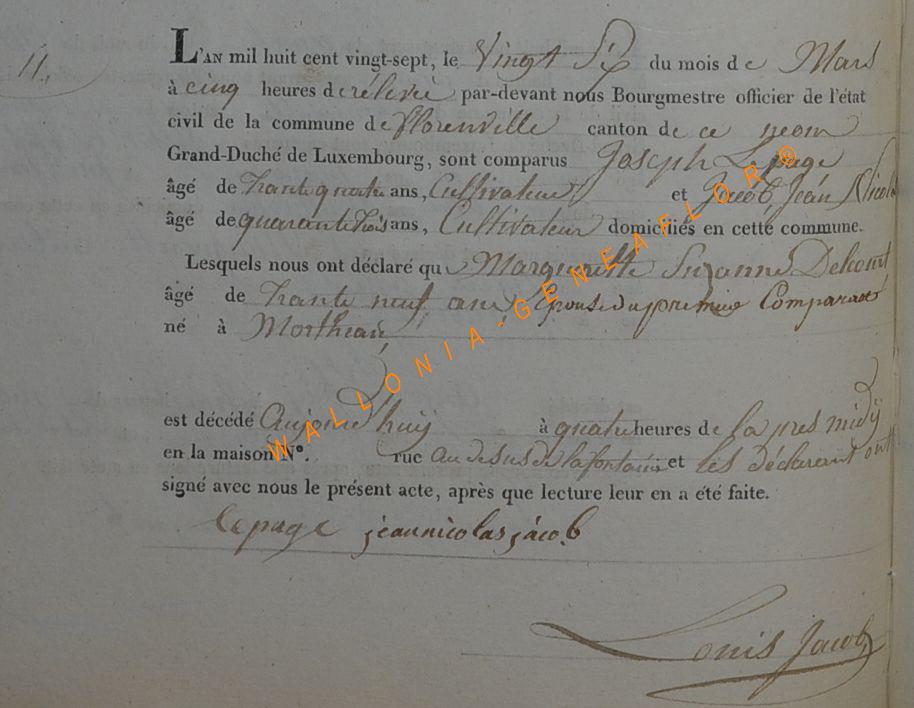 11.
L'AN mil huit cent vingt-sept, le Vingt Six du mois de Mars
à cinq heures de relevée par-devant nous Bourgmestre officier de l'état
civil de la commune de florenville canton de ce nom
Grand-Duché de Luxembourg, sont comparus Joseph Lepage
âgé de trante quatre ans, Cultivateur et Jacob, Jean Nicolas
âgé de quarante trois ans, Cultivateur domiciliés en cette commune.
Lesquels nous ont déclaré que Margueritte Suzanne Delcourt
âgé de trante neuf ans, Epouse du premier Comparant
né à Morthean
est décédé Aujourd'huij à quatre heures de la pres midij
en la maison N°. rue au desus de la fontaine et les déclarant ont
signé avec nous le présent acte, après que lecture leur en a été faite.
lepage jeannicolas jacob
Louis Jacob
WALLONIA-GENEAFLOR ®